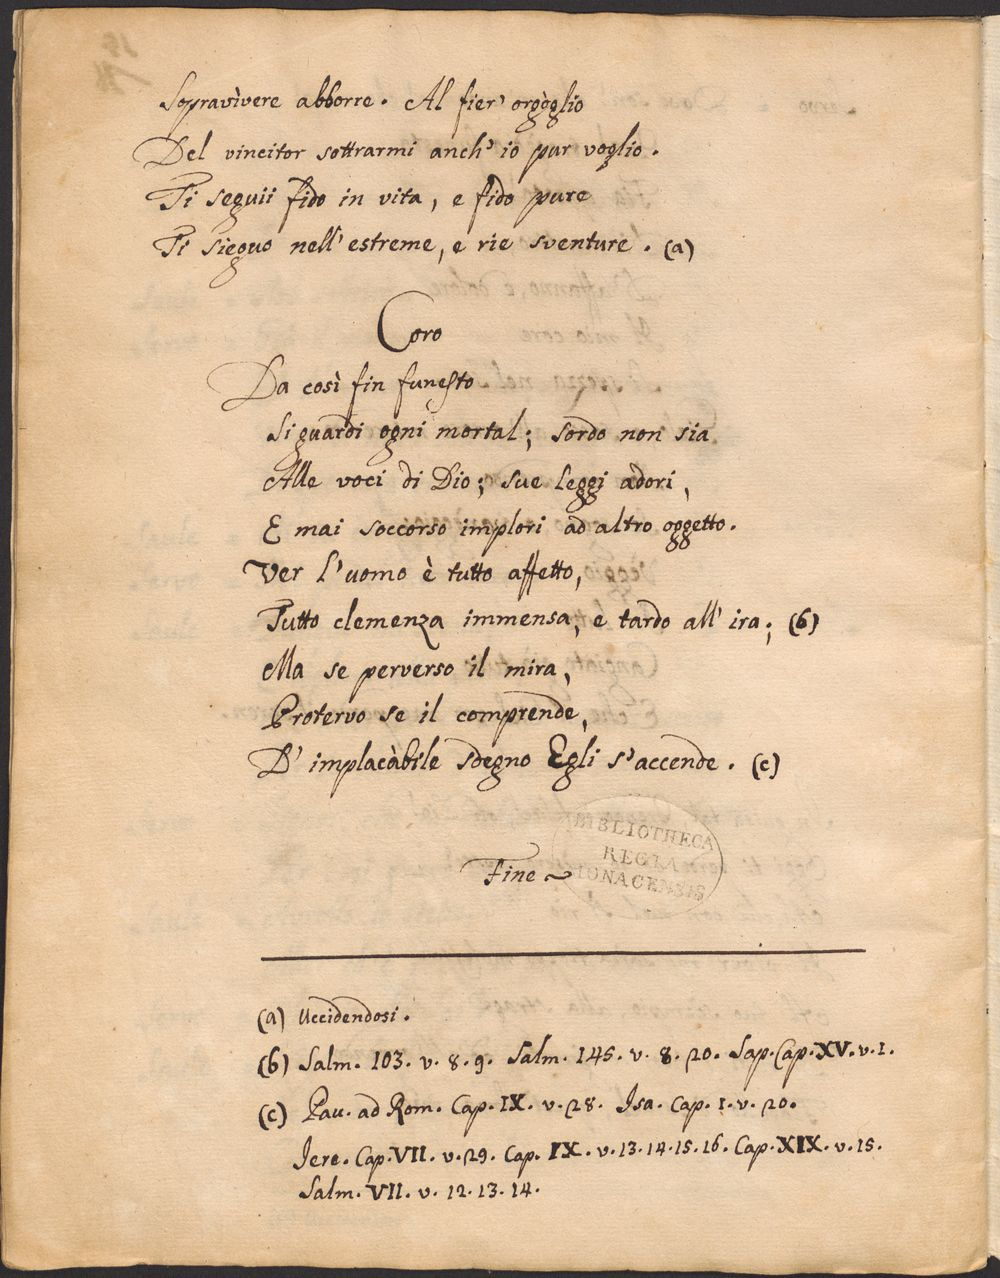 Sopravìvere abborre. Al fier' orgòglio
Del vincitor sottrarmi anch' io pur voglio.
Ti seguii fido in vita, e fido pure
Ti sieguo nell' estreme, e rie sventure. (a)
Coro
Da così fin funesto
Si guardi ogni mortal; sordo non sia
Alle voci di Dio; sue leggi adori,
E mai soccorso implori ad altro oggetto.
Ver l'uomo è tutto affetto,
Tutto clemenza immensa, e tardo all' ira; (b)
Ma se perverso il mira,
Protervo se il comprende,
D' implacàbile sdegno Egli s'accende. (c)
BIBLIOTHECA
REGIA
MONACENSIS
Fine
(a) Uccidendosi.
(b) Salm. 103. v. 8. 9. Salm. 145. v. 8. 20. Sap. Cap. XV. v. 1.
(c) Pau. ad Rom. Cap. IX. v. 28. Isa. Cap. 1. v. 20.
Jere. Cap. VII. v. 29. Cap. IX. v. 13. 14. 15. 16. Cap. XIX. v. 15.
Salm. VII. v. 12. 13. 14.